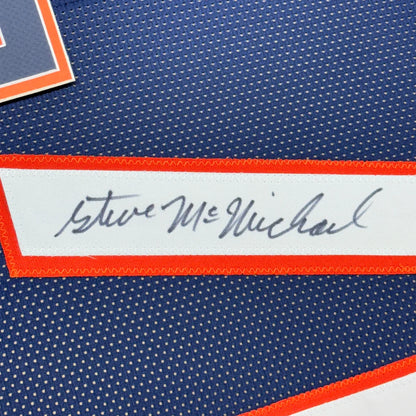 Steve McMichael